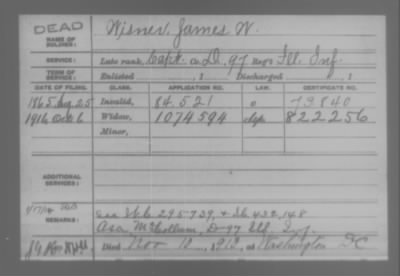 DEAD
NAME OF SOLDIER: Wisner, James W.
SERVICE: Late rank, Capt. Co. D, 97 Reg't Ill. Inf.
TERM OF SERVICE: Enlisted , 1 Discharged , 1
DATE OF FILING. CLASS. APPLICATION NO. LAW. CERTIFICATE NO.
1865 Aug 25 Invalid, 84.521 79840
1916 Oct 6 Widow, 1074594 822256
Minor,
ADDITIONAL SERVICES:
REMARKS: 295739, & 432,148
Asa McCollum, D-97 Ill. Inf.
Died Nov 191 , at Washington DC